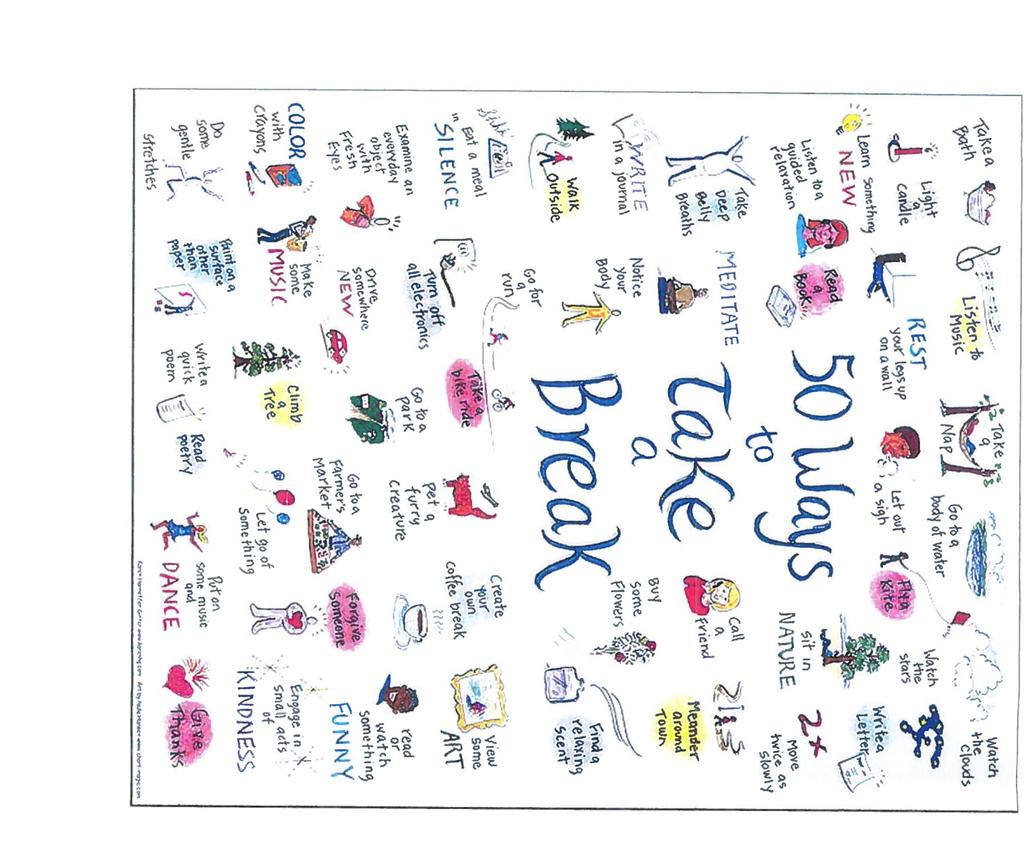 Take a
Bath
Listen to
Music
Take
a
Nap
Go to a
body of water
Watch
the clouds
Light
a
candle
Learn something
NEW
REST
your legs up
on a wall
Let out
a sigh
Fly a
Kite
Watch
the
stars
Write a
Letter
Listen to a
guided
relaxation
Read
a
Book
50 Ways
to
Take
a
Break
sit in
NATURE
2x
Move
twice as
slowly
Take
Deep
Belly
Breaths
MEDITATE
Call
a
Friend
Meander
around
Town
WRITE
in a journal
Notice
your
Body
Buy
some
Flowers
Find a
relaxing
Scent
Walk
Outside
Go for
a
run
Take a
bike ride
Eat a meal
in SILENCE
Turn off
all electronics
pet a
furry
creature
Create
your
own
coffee break
View
some
ART
Examine an
everyday
object
with
Fresh
Eyes
Drive
somewhere
NEW
Go to a
park
Go to a
Farmer's
Market
Forgive
Someone
read
or
watch
something
FUNNY
COLOR
with
crayons
Make
some
MUSIC
Climb
a
Tree
Let go of
something
Engage in
small acts
of
KINDNESS
Do
some
gentle
stretches
Paint on a
surface
other
than
paper
Write a
quick
poem
Read
poetry
Put on
some music
and
DANCE
Give
Thanks